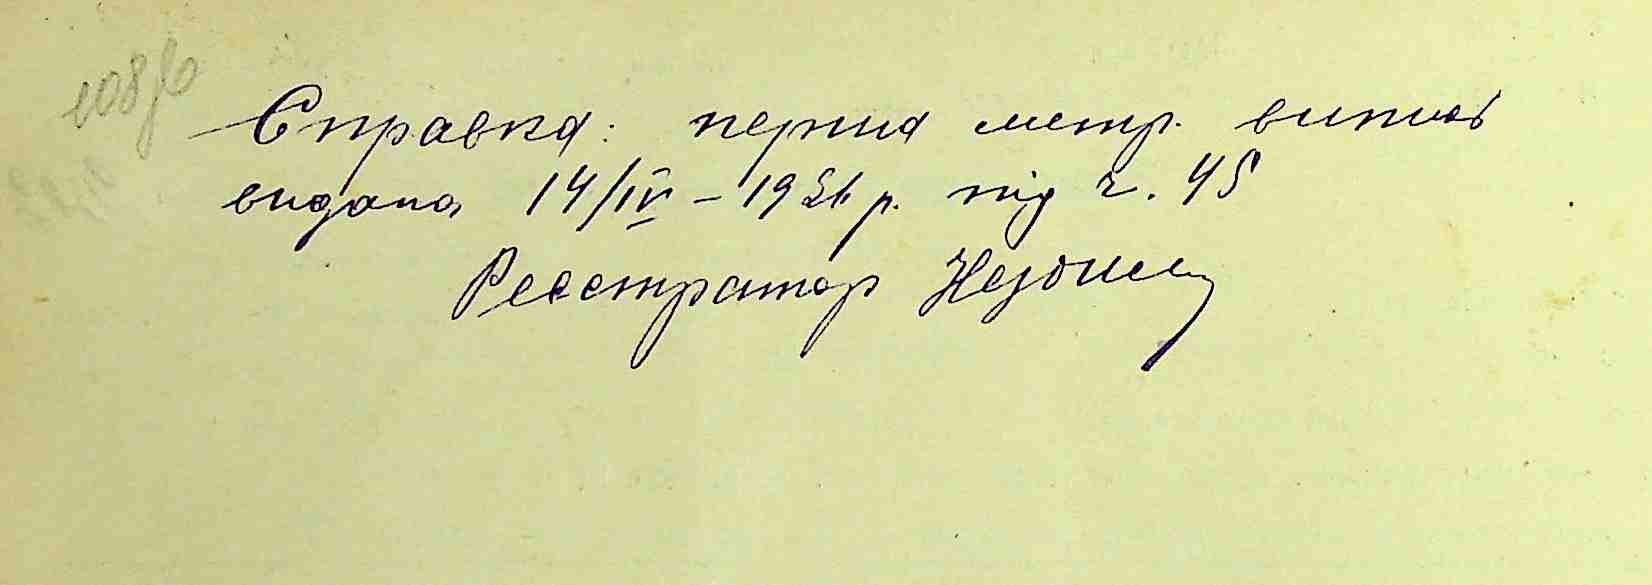 Справка: перша метр. випись
видана 14/IV – 1926 р. під ч. 45
Реєстратор